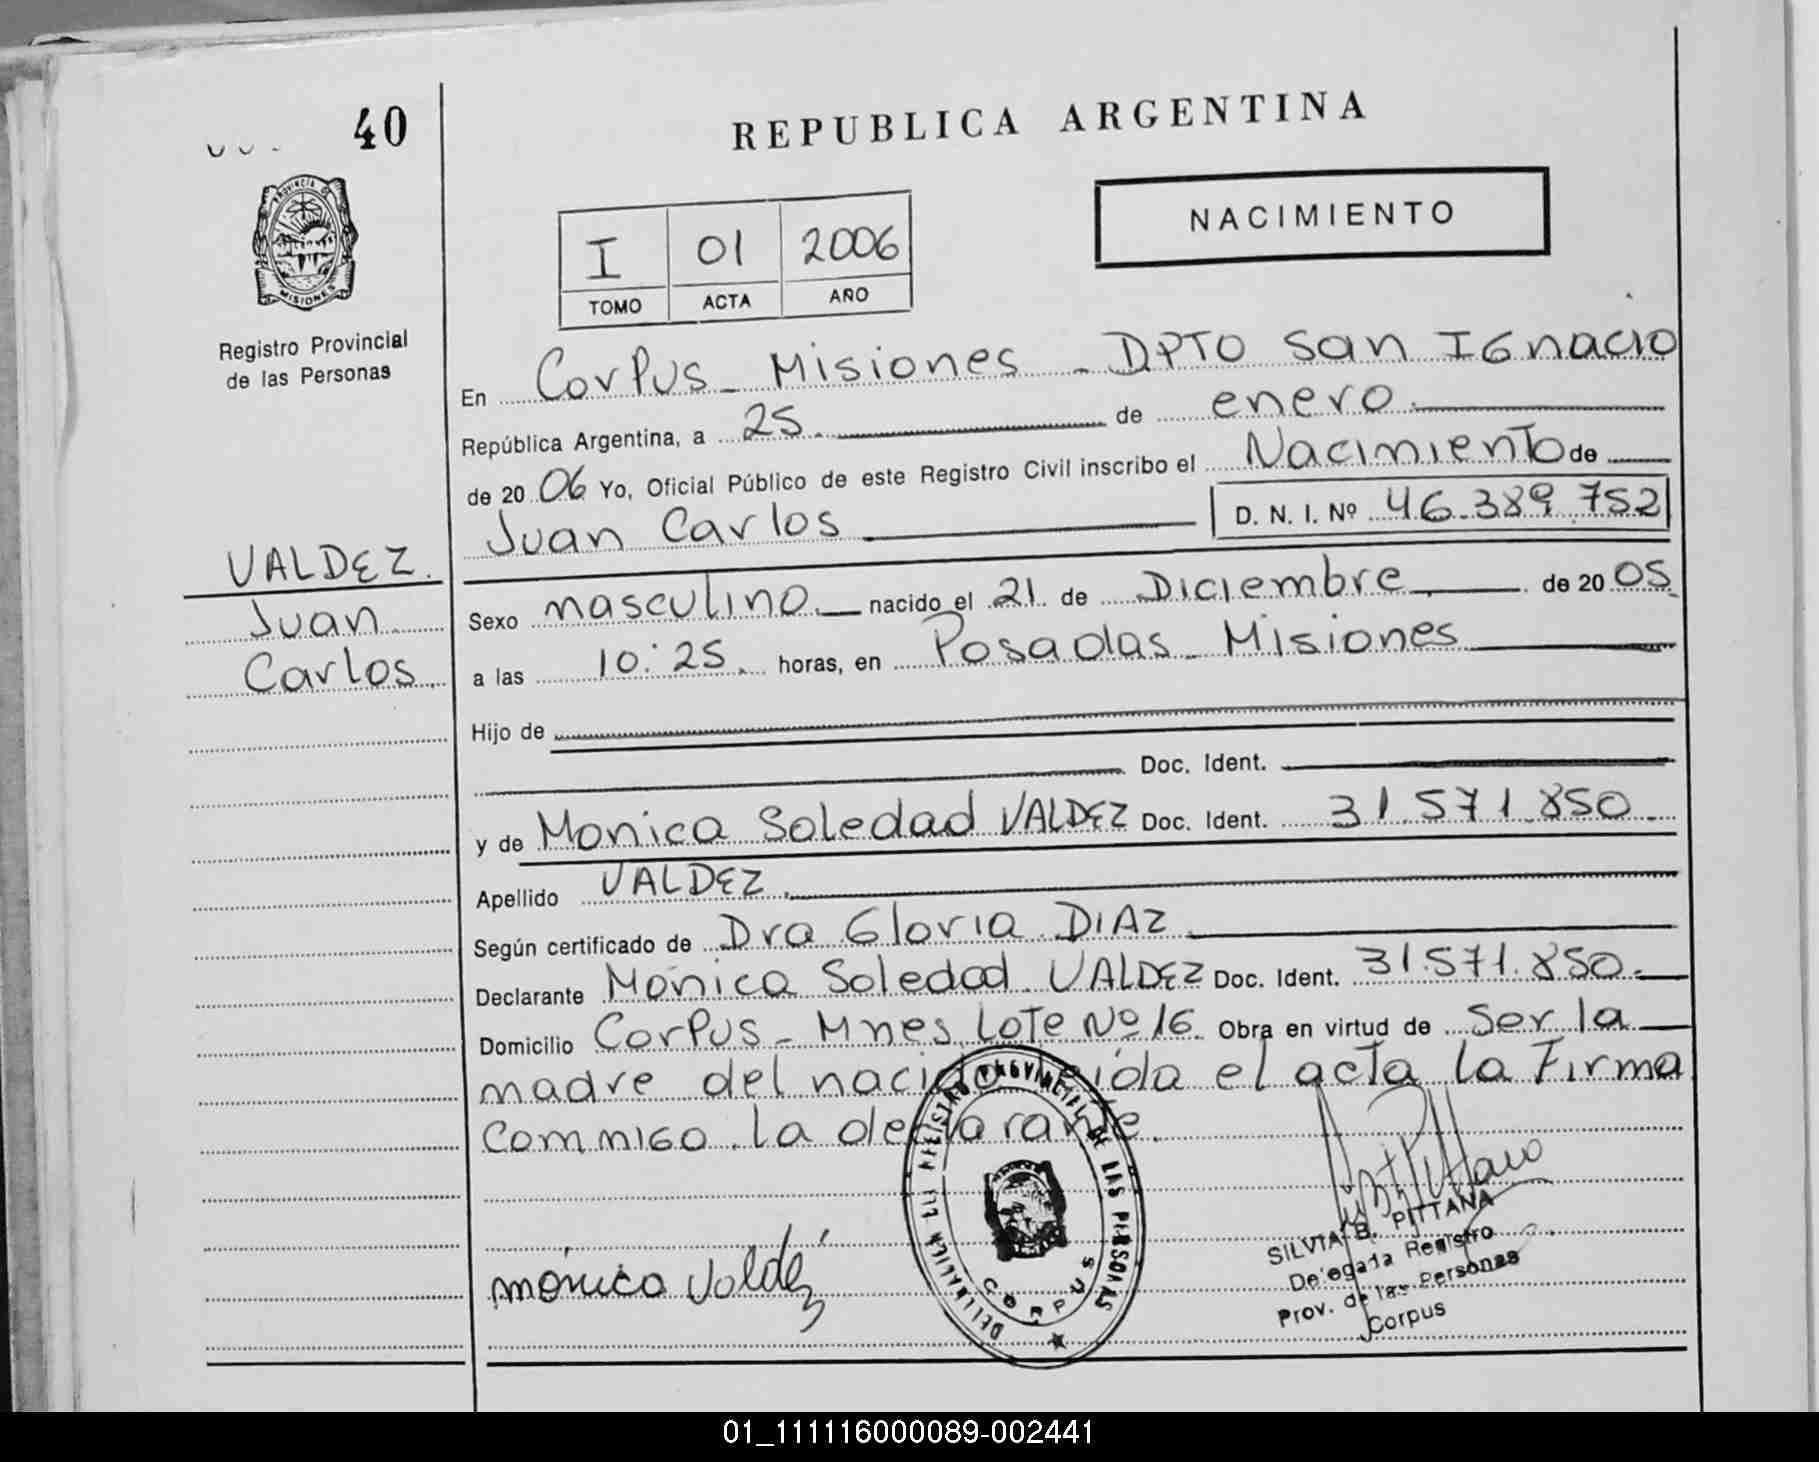 40
REPUBLICA ARGENTINA
PROVINCIA DE
MISIONES
Registro Provincial
de las Personas
NACIMIENTO
I 01 2006
TOMO ACTA AÑO
En Corpus - Misiones - DPTO San IGnacio
República Argentina, a 25. de enero.
de 20 06 Yo, Oficial Público de este Registro Civil inscribo el Nacimiento de
Juan Carlos D. N. I. Nº 46.389.752
VALDEZ.
Juan
Carlos
Sexo masculino. nacido el 21 de Diciembre de 20 05
a las 10:25. horas, en Posadas - Misiones
Hijo de
Doc. Ident.
y de Monica Soledad VALDEZ Doc. Ident. 31.571.850.
Apellido VALDEZ.
Según certificado de Dra Gloria DIAZ
Declarante Mónica Soledad VALDEZ Doc. Ident. 31.571.850.
Domicilio Corpus - Mnes. Lote Nº 16 Obra en virtud de Ser la
madre del nacido leída el acta la Firma
commigo la declarante.
mónica Valdéz
REGISTRO PROVINCIAL DE LAS PERSONAS
CORPUS
SILVIA B. PITTANA
Delegada Registro
Prov. de las Personas
Corpus
01_111116000089-002441